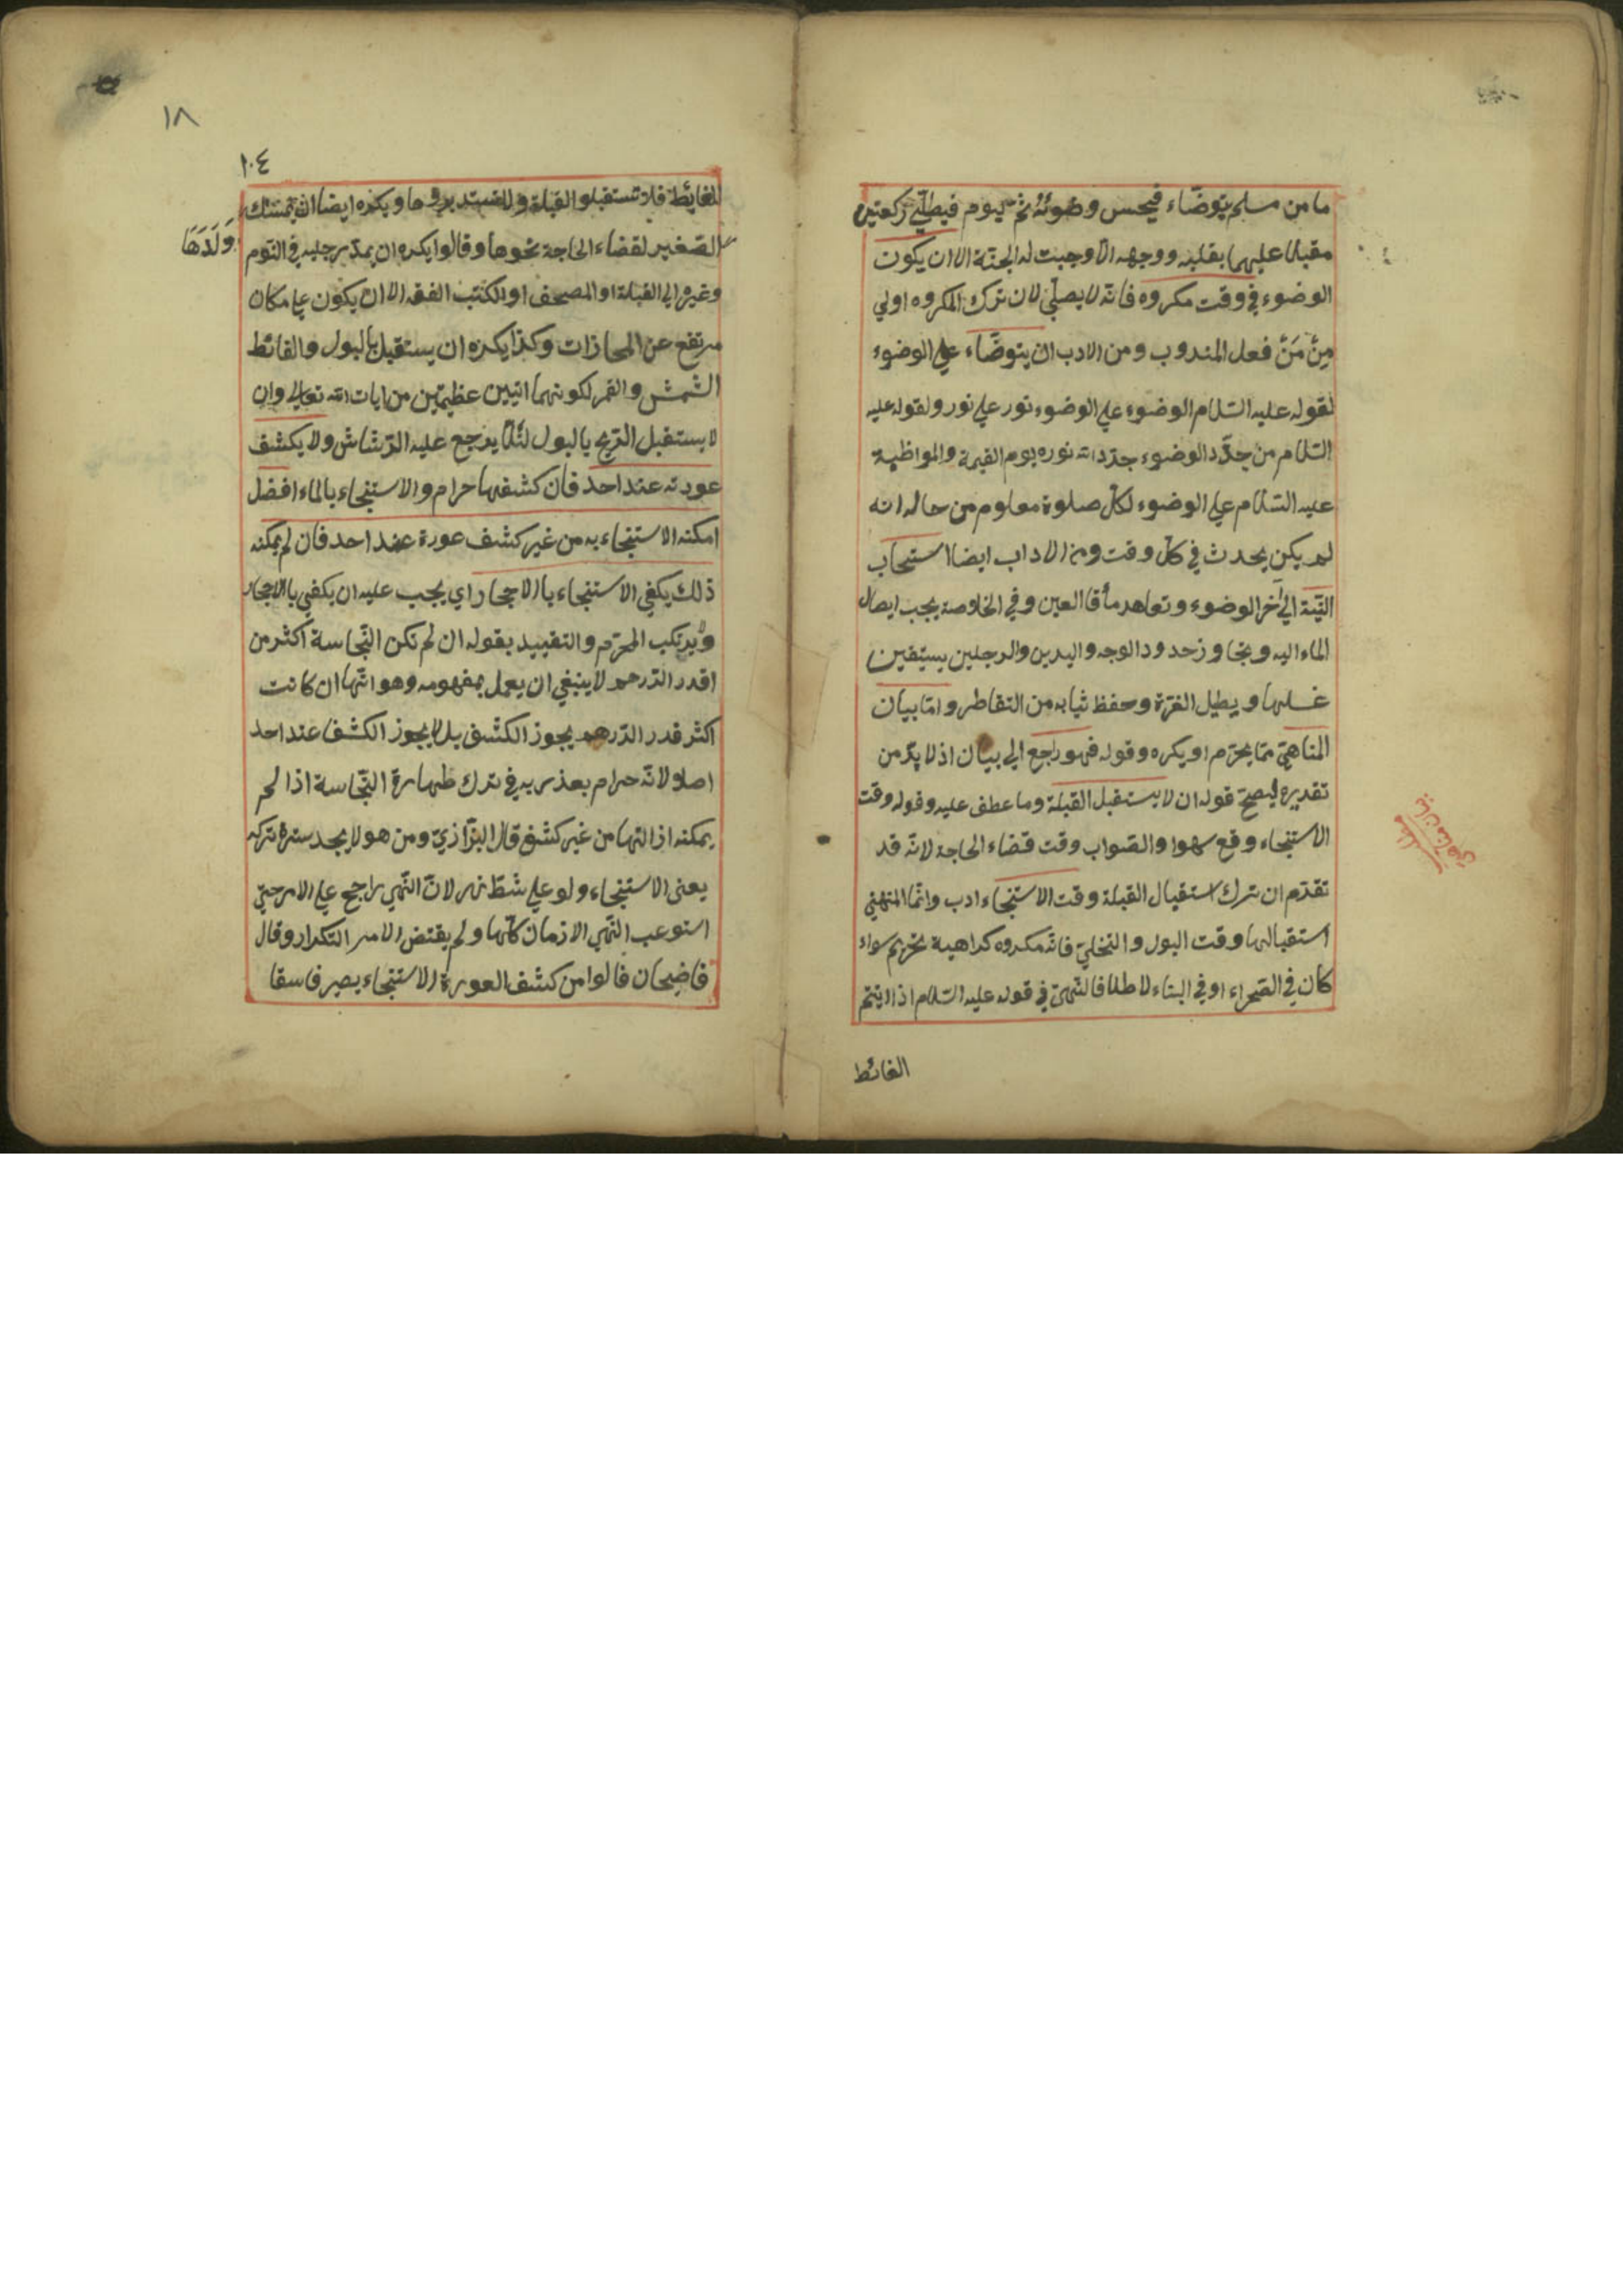 ما من مسلم يتوضّاء فيحسن وضوئهُ ثمّ يوم فيصلّي ركعتين
مقبلا عليهما بقلبه ووجهه الّا وجبت له الجنّة الا ان يكون
الوضوء في وقت مكروه فانّه لا يصلّي لان ترك المكروه اولي
مِنْ فعل المندوب ومن الادب ان يتوضّاء علي الوضوء
لقوله عليه السّلام الوضوء علي الوضوء نور علي نور ولقوله عليه
السّلام من جدّد الوضوء جدّد الله نوره يوم القيمة والمواظبة
عليه السّلام علي الوضوء لكلّ صلوة معلوم من حاله انه
لم يكن يحدث في كلّ وقت ومن الاداب ايضا استحاب
النيّة الي آخر الوضوء وتعاهد مأقا العين وفي الخلاصة يجب ايصال
الماء اليه وتجاوز حدود الوجه واليدين والرجلين يستيقين
غسلها ويطيل الغرّة وحفظ ثيابه من التقاطر وامّا بيان
المناهيّ ممّا يحرّم او يكره وقوله فهو راجع الي بيان اذ لا بدّ من
تقديره ليصحّ قوله ان لا يستقبل القبلة وما عطف عليه وقوله وقت
الاستنجاء وقع سهوا والصّواب وقت قضاء الحاجة لانّه قد
تقدّم ان ترك استقبال القبلة وقت الاستنجاء ادب وانّما المنهيّ
استقبالها وقت البول والتخليّ فانّه مكروه كراهية تحريم سواء
كان في الصّحراء او في البناء لاطلاق النّهيّ في قوله عليه السّلام اذا اتيتم
الغائط
بيان مناهيّ
١٨
١٠٤
الغائط فلا تستقبلوا القبلة ولا تستدبروها ويكره ايضا ان تمسك
وَلَدَهَا
الصّغير لقضاء الحاجة نحوها وقالوا يكره ان يمدّ رجليه في النّوم
وغيره الي القبلة او المصحف او الكتب الفقه الا ان يكون علي مكان
مرتفع عن المحازات وكذا يكره ان يستقبل بالبول والغائط
الشّمش والقمر لكونهما ايتين عظيمتين من ايات الله تعالي وان
لا يستقبل الرّيح بالبول لئلّا يرجع عليه الرّشاش ولا يكشف
عورته عند احد فان كشفها حرام والاستنجاء بالماء افضل
امكنه الاستنجاء به من غير كشف عورة عند احد فان لم يمكنه
ذلك يكفي الاستنجاء بالاحجار اي يجب عليه ان يكفي بالاحجار
ولا يرتكب المحرّم والتقييد بقوله ان لم تكن النّجاسة اكثر من
اقدر الدّرهم لا ينبغي ان يعمل بمفهومه وهو انّها ان كانت
اكثر قدر الدّرهم يجوز الكشف بل لا يجوز الكشف عند احد
اصلا لانّه حرام يعذر به في ترك طهارة النّجاسة اذا لم
يمكنه ازالتها من غير كشف قال البزّازيّ ومن هو لا يجد سترة تركه
يعنى الاستنجاء ولو علي شطّ نهر لانّ النّهي راجح علي الامر حتيّ
استوعب النّهي الازمان كلّها ولم يقتض الامر التكرار وقال
قاضيحان قالوا من كشف العورة للاستنجاء يصير فاسقا